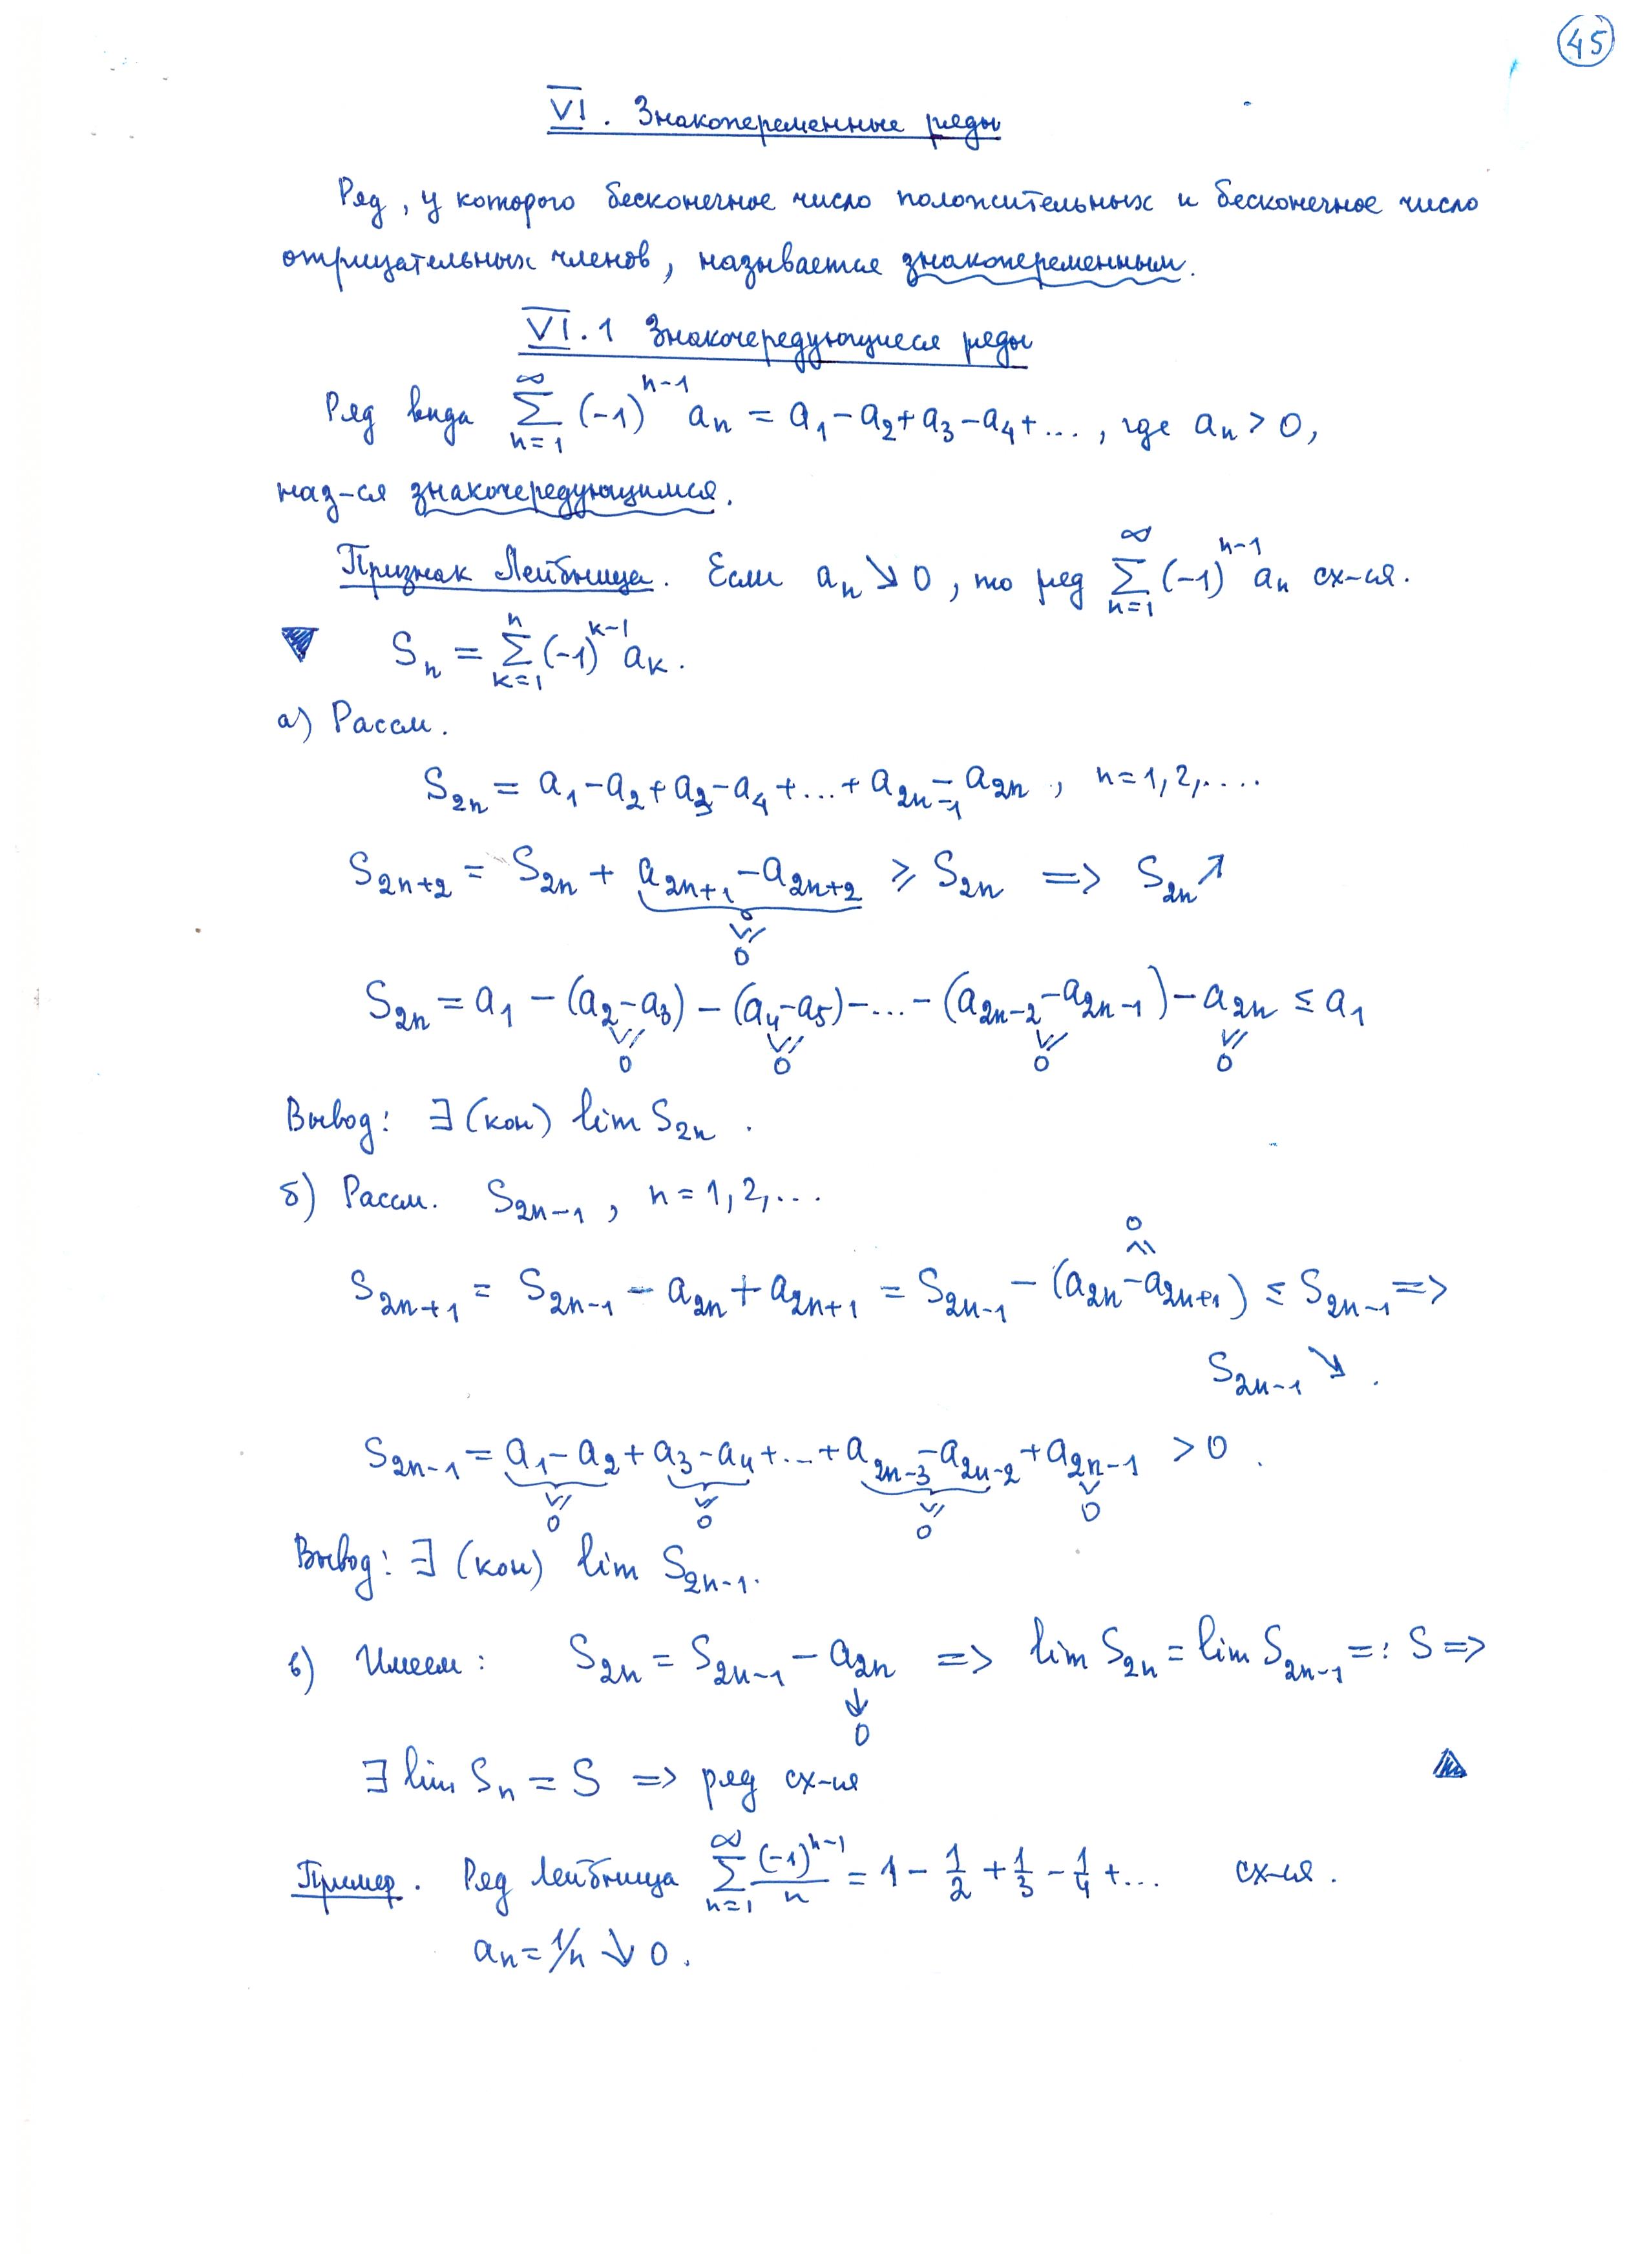 45
VI. Знакопеременные ряды
Ряд, у которого бесконечное число положительных и бесконечное число
отрицательных членов, называется знакопеременным.
VI.1 Знакочередующиеся ряды
Ряд вида ∑_{n=1}^{∞} (-1)^{n-1} a_n = a_1 - a_2 + a_3 - a_4 + ..., где a_n > 0,
наз-ся знакочередующимся.
Признак Лейбница. Если a_n ↘ 0, то ряд ∑_{n=1}^{∞} (-1)^{n-1} a_n сх-ся.
▼ S_n = ∑_{k=1}^{n} (-1)^{k-1} a_k.
а) Рассм.
S_{2n} = a_1 - a_2 + a_3 - a_4 + ... + a_{2n-1} - a_{2n}, n = 1, 2, ....
S_{2n+2} = S_{2n} + a_{2n+1} - a_{2n+2} ≥ S_{2n} => S_{2n} ↗
≥ 0
S_{2n} = a_1 - (a_2 - a_3) - (a_4 - a_5) - ... - (a_{2n-2} - a_{2n-1}) - a_{2n} ≤ a_1
≥ 0 ≥ 0 ≥ 0 ≥ 0
Вывод: ∃ (кон) lim S_{2n}.
б) Рассм. S_{2n-1}, n = 1, 2, ...
0 ≤
S_{2n+1} = S_{2n-1} - a_{2n} + a_{2n+1} = S_{2n-1} - (a_{2n} - a_{2n+1}) ≤ S_{2n-1} =>
S_{2n-1} ↘.
S_{2n-1} = a_1 - a_2 + a_3 - a_4 + ... + a_{2n-3} - a_{2n-2} + a_{2n-1} > 0.
≥ 0 ≥ 0 ≥ 0 > 0
Вывод: ∃ (кон) lim S_{2n-1}.
в) Имеем: S_{2n} = S_{2n-1} - a_{2n} => lim S_{2n} = lim S_{2n-1} =: S =>
↓ 0
∃ lim S_n = S => ряд сх-ся ▲
Пример. Ряд Лейбница ∑_{n=1}^{∞} (-1)^{n-1}/n = 1 - 1/2 + 1/3 - 1/4 + ... сх-ся.
a_n = 1/n ↘ 0.